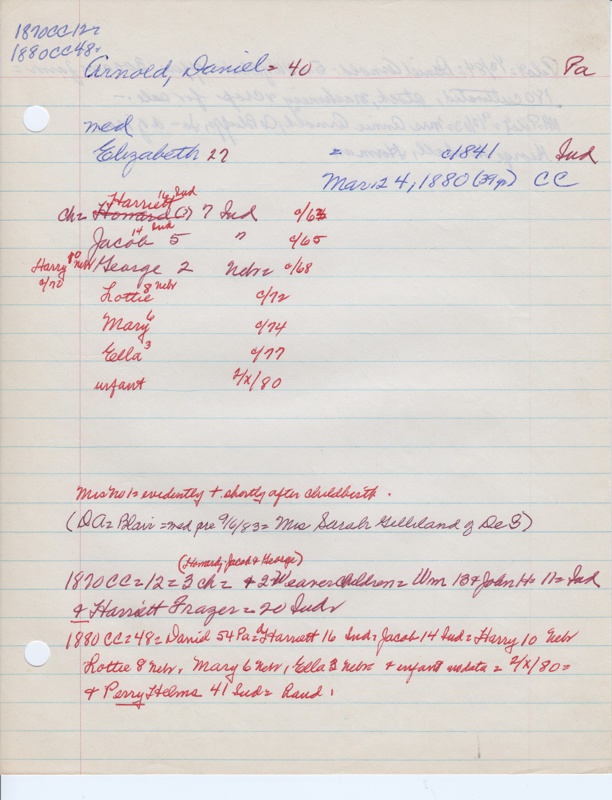 1870CC12=
1880CC48=
Arnold, Daniel = 40 Pa
med
Elizabeth 27 = c1841 Ind
Mar 24, 1880 (39y) CC
Harriett 16 Ind
ch= Howard (?) 7 Ind c/63
14 Ind
Jacob 5 " c/65
Harry 80 Nebr George 2 Nebr= c/68
c/70
Lottie 8 Nebr c/72
Mary 6 c/74
Ella 3 c/77
infant 2/X/80
Mrs No 1= evidently + shortly after childbirth.
(DA= Blair = med pre 9/6/83= Mrs Sarah Gilleland of De S)
(Howard, Jacob & George)
1870CC=12=3 ch= + 2 Weaver children= Wm 13 & John H 11= Ind
& Harriett Frazer=20 Ind
1880CC=48= Daniel 54 Pa= Harriett 16 Ind= Jacob 14 Ind= Harry 10 Nebr
Lottie 8 Nebr, Mary 6 Nebr, Ella 3 Nebr & infant no data = 2/X/80=
& Perry Helms 41 Ind= hand